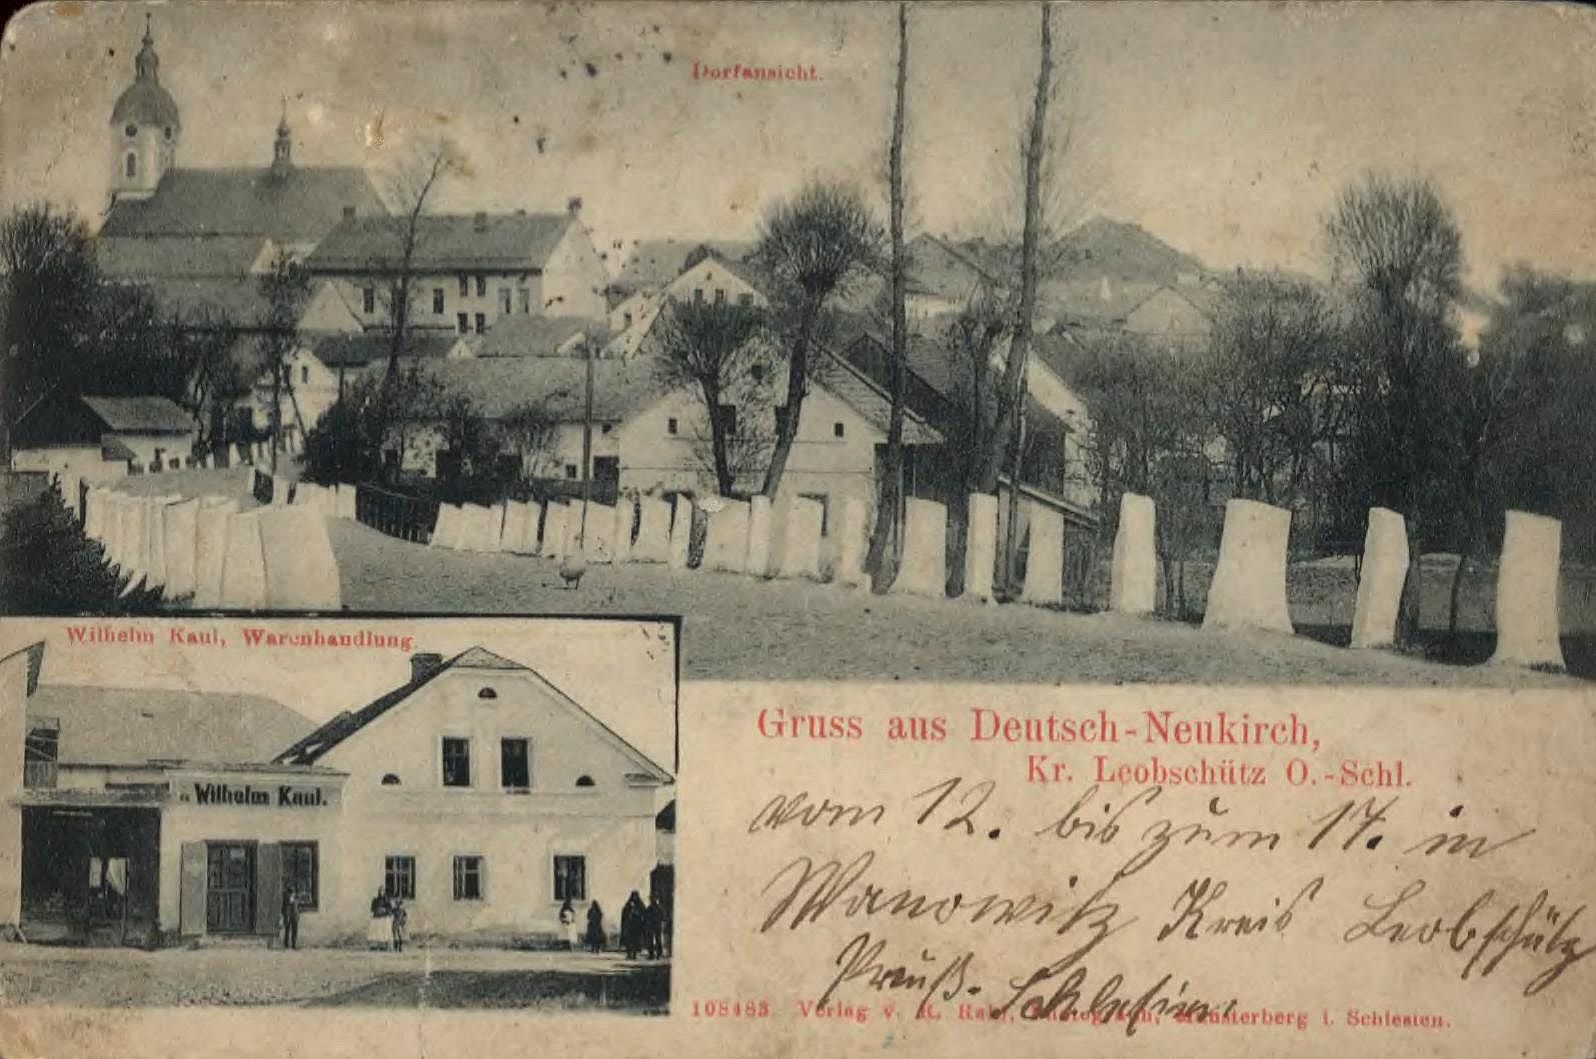 Dorfansicht.
Wilhelm Kaul, Warenhandlung.
Wilhelm Kaul.
Gruss aus Deutsch-Neukirch,
Kr. Leobschütz O.-Schl.
vom 12. bis zum 17. in
Wanowitz Kreis Leobschütz
Preuß. Schlesien.
108483 Verlag v. R. Photograph, Münsterberg i. Schlesien.